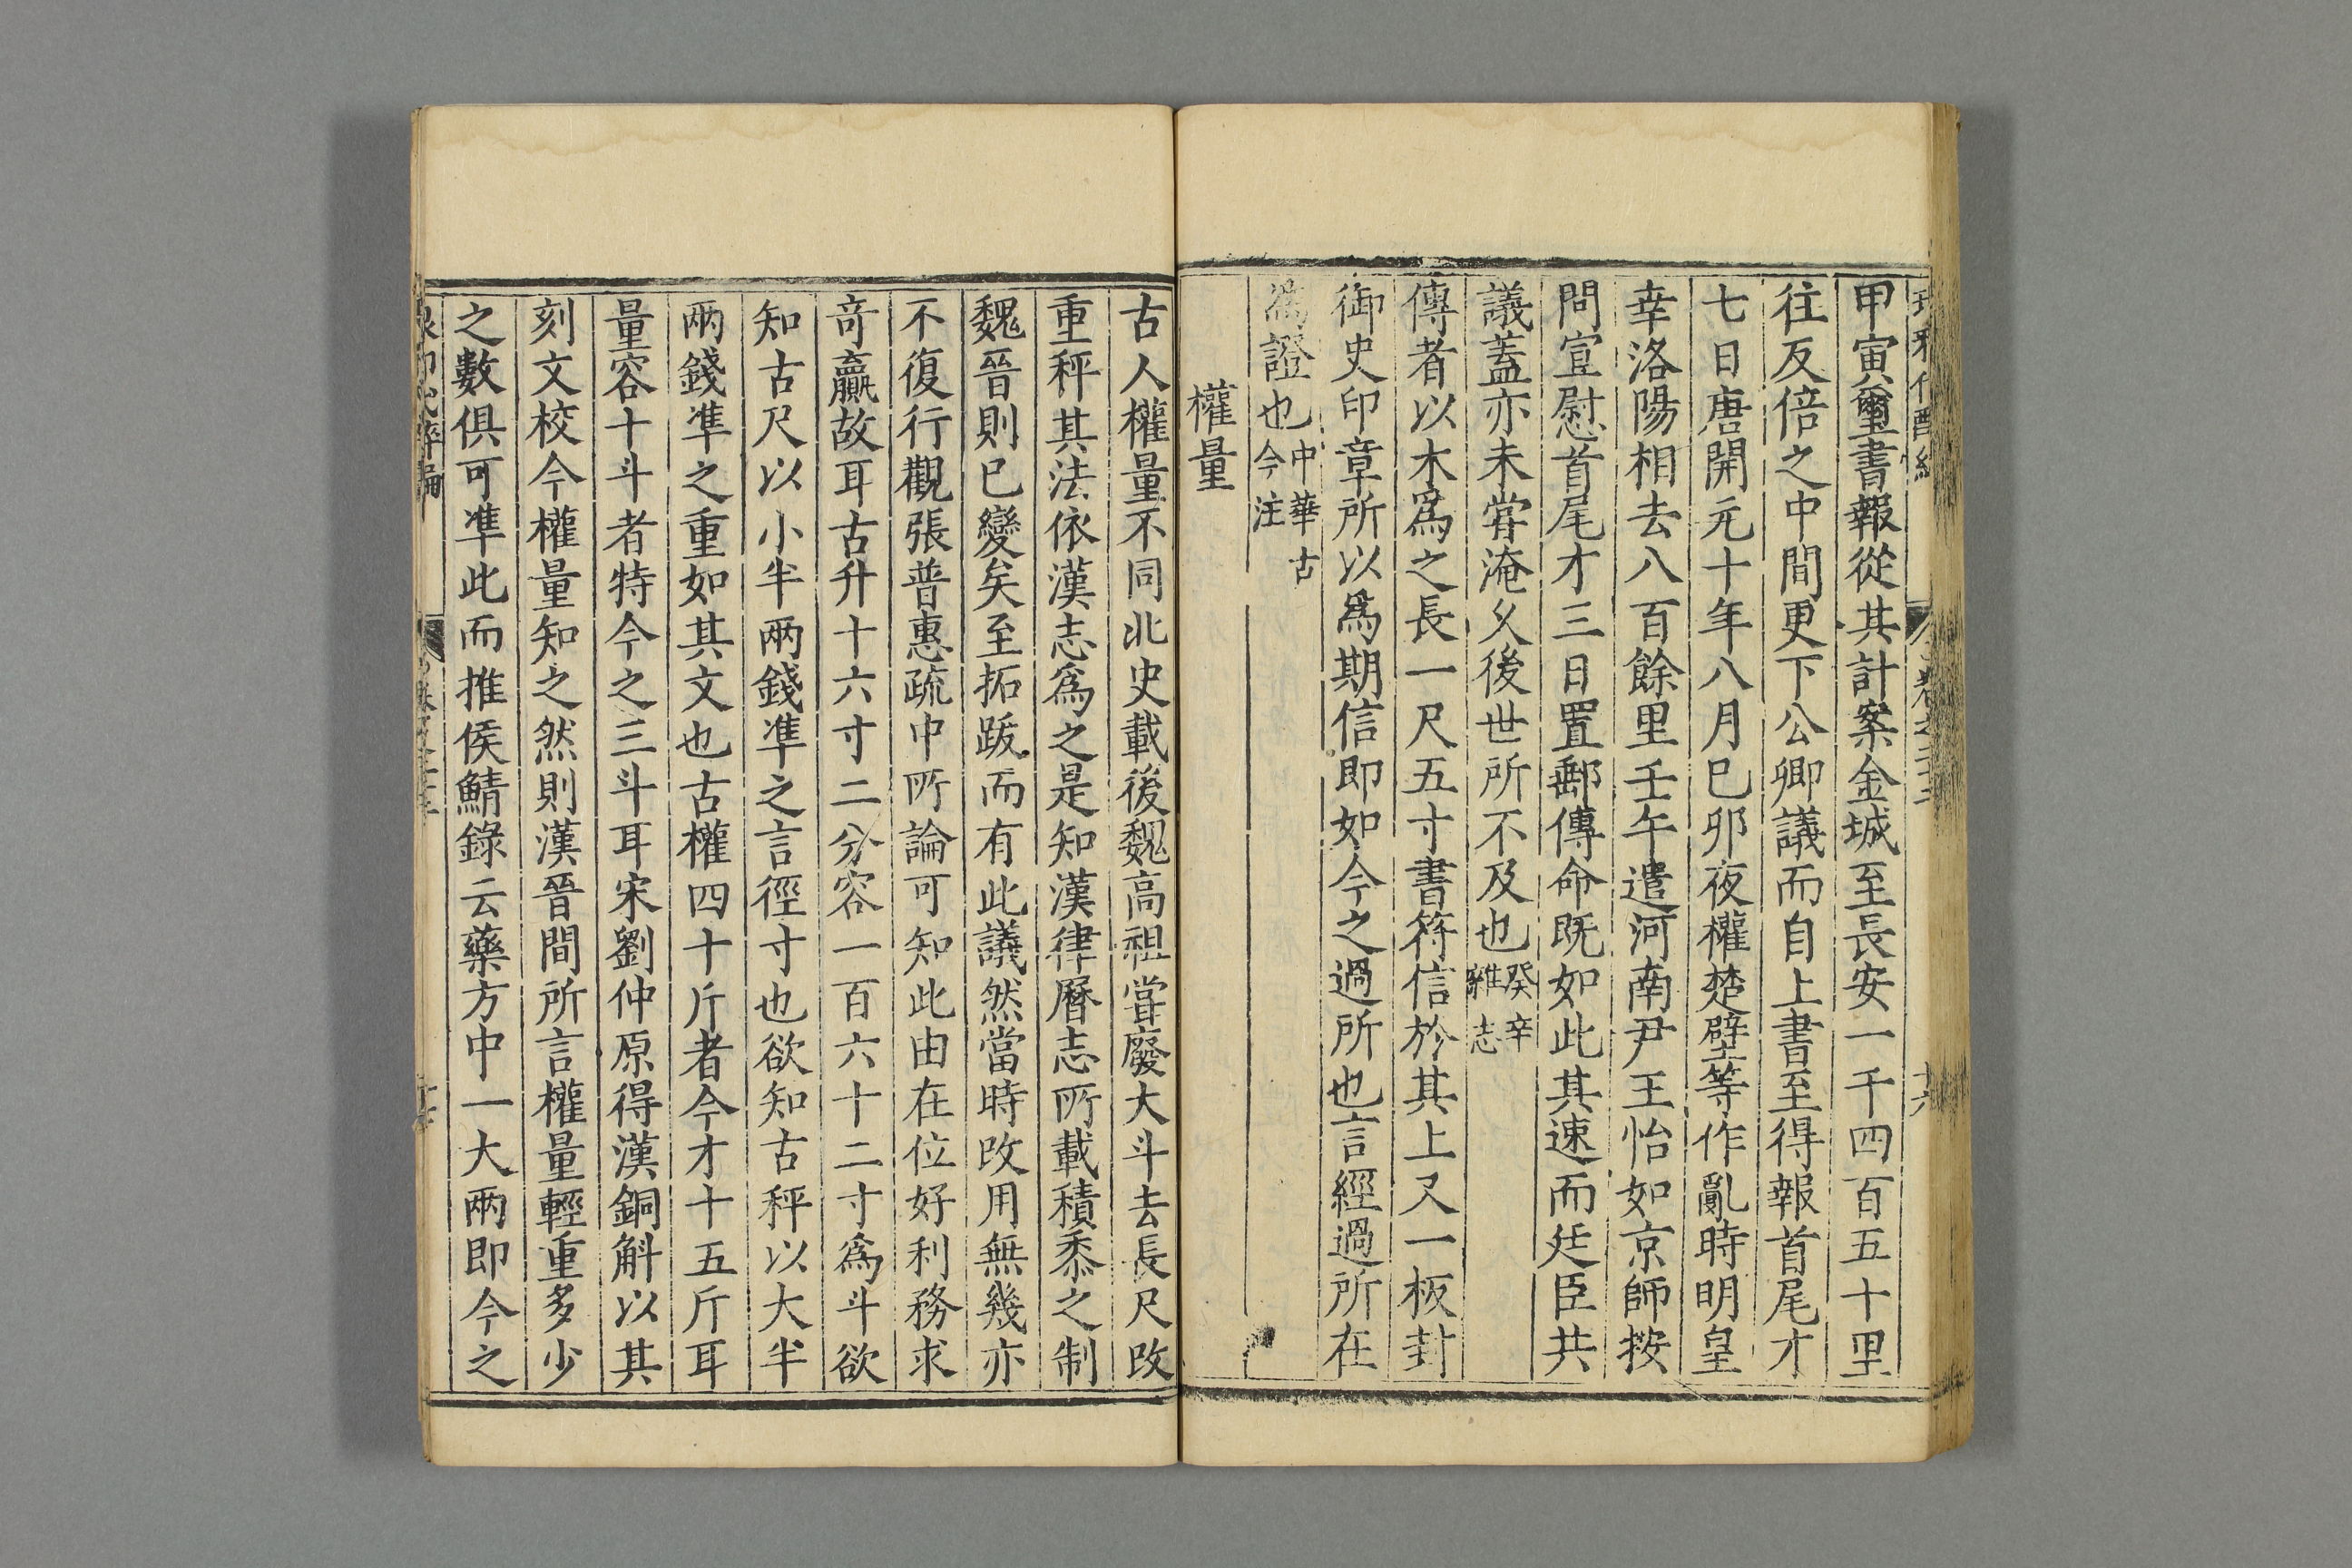 甲寅璽書報從其計案金城至長安一千四百五十里
往反倍之中間更下公卿議而自上書至得報首尾才
七日唐開元十年八月巳夘夜權楚壁等作亂時明皇
幸洛陽相去八百餘里壬午遣河南尹王怡如京師按
問宣慰首尾才三日置郵傳命既如此其速而廷臣共
議蓋亦未甞淹久後世所不及也癸辛
雜志
傳者以木爲之長一尺五寸書符信於其上又一板封
御史印章所以爲期信即如今之過所也言經過所在
爲證也中華古
今注
權量
古人權量不同北史載後魏高祖甞廢大斗去長尺改
重秤其法依漢志爲之是知漢律曆志所載積黍之制
魏晉則巳變矣至拓跋而有此議然當時改用無幾亦
不復行觀張普惠疏中所論可知此由在位好利務求
竒贏故耳古升十六寸二分容一百六十二寸爲斗欲
知古尺以小半兩錢準之言徑寸也欲知古秤以大半
兩錢準之重如其文也古權四十斤者今才十五斤耳
量容十斗者特今之三斗耳宋劉仲原得漢銅斛以其
刻文校今權量知之然則漢晉間所言權量輕重多少
之數俱可準此而推侯鯖錄云藥方中一大兩即今之